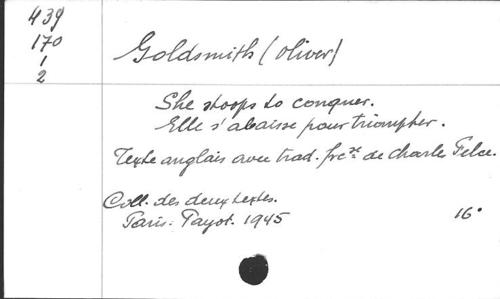 439
170
1
2
Goldsmith (Oliver)
She stoops to conquer.
Elle s'abaisse pour triompher.
Texte anglais avec trad. frçse de Charle Felce.
Coll. des deux textes.
Paris. Payot. 1945
16°